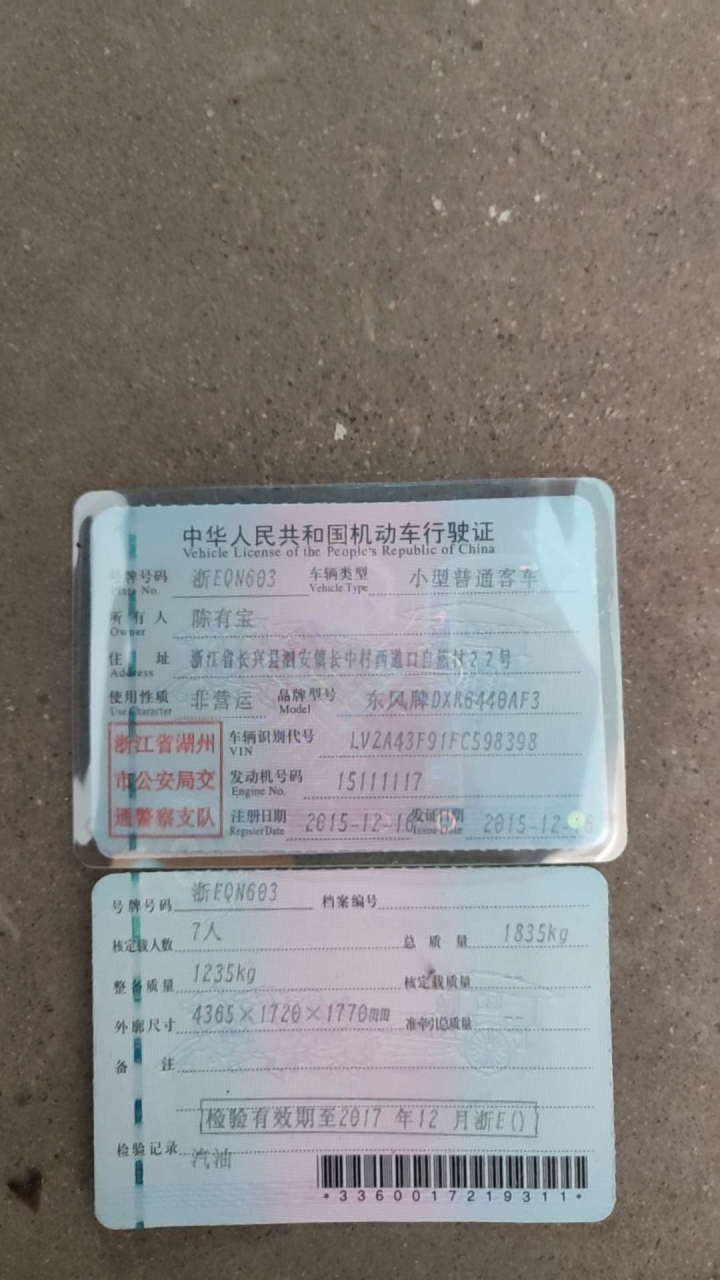 中华人民共和国机动车行驶证
Vehicle License of the People's Republic of China
号牌号码 浙EQN603 车辆类型 小型普通客车
Plate No. Vehicle Type
所有人 陈有宝
Owner
住址 浙江省长兴县泗安镇长中村西道口自然村22号
Address
使用性质 非营运 品牌型号 东风牌DXK6440AF3
Use Character Model
浙江省湖州
市公安局交
通警察支队
车辆识别代号 LVZA43F91FC598398
VIN
发动机号码 15111117
Engine No.
注册日期 2015-12-16 发证日期 2015-12-16
Register Date Issue Date
号牌号码 浙EQN603 档案编号
核定载人数 7人 总质量 1835kg
整备质量 1235kg 核定载质量 --
外廓尺寸 4365×1720×1770mm 准牵引总质量 --
备注
检验有效期至2017 年12 月浙E()
检验记录
汽油
*3360017219311*